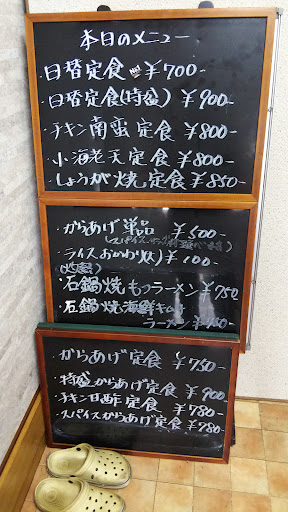 本日のメニュー
日替定食 No.1 ￥700-
日替定食(特盛)￥900-
チキン南蛮定食￥800-
小海老天定食￥800-
しょうが焼定食￥850-
からあげ単品 ￥500-
ライスおかわり ￥100-
石鍋焼もつラーメン￥750
石鍋焼海鮮キムチ
ラーメン
からあげ定食 ￥750-
特盛からあげ定食 ￥900
チキン甘酢定食 ￥780-
スパイスからあげ定食￥780-